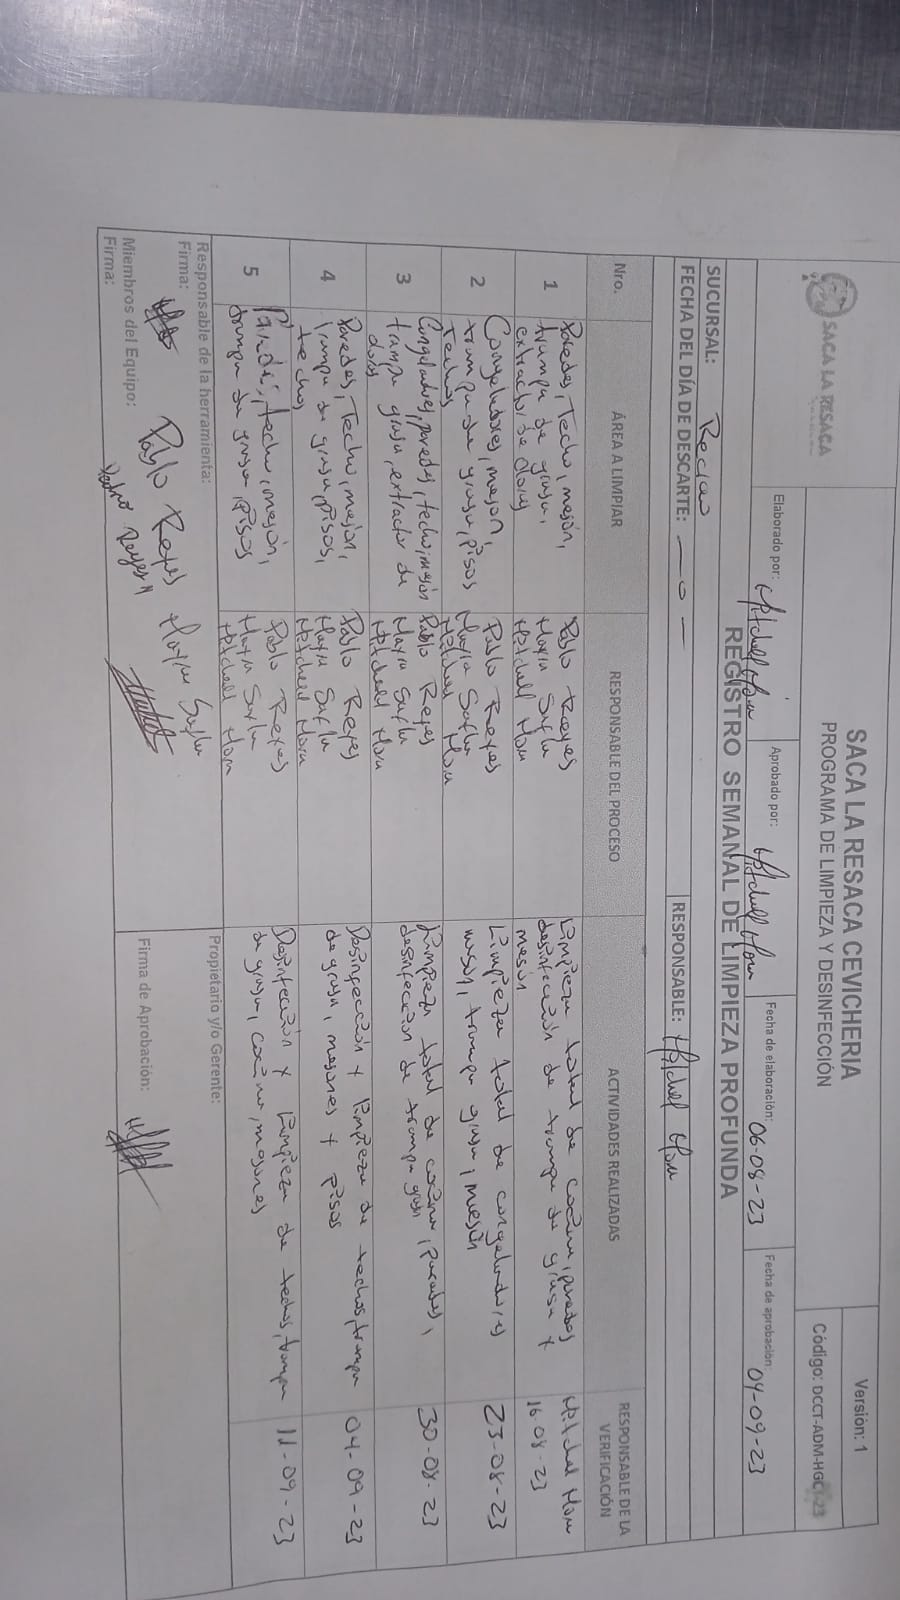 SACA LA RESACA
SACA LA RESACA CEVICHERIA
PROGRAMA DE LIMPIEZA Y DESINFECCIÓN
Versión: 1
Código: DCCT-ADM-HGCT-23
Elaborado por: Mitchell Mora
Aprobado por: Mitchell Mora
Fecha de elaboración: 06-08-23
Fecha de aprobación: 04-09-23
REGISTRO SEMANAL DE LIMPIEZA PROFUNDA
SUCURSAL:
FECHA DEL DÍA DE DESCARTE: — 0 —
RESPONSABLE: Mitchel Mora
Nro.
ÁREA A LIMPIAR
RESPONSABLE DEL PROCESO
ACTIVIDADES REALIZADAS
RESPONSABLE DE LA
VERIFICACIÓN
1
Paredes, Techo, mesón,
trampa de grasa,
extractor de olores
Pablo Reyes
Mayra
Mitchell Mora
Limpieza total de cocina, paredes,
desinfección de trampa de grasa y
meson
Mitchel Mora
16-08-23
2
Congeladores, meson,
trampa de grasa, pisos
Techos
Pablo Reyes
Mayra
Mitchell Mora
Limpieza total de congeladores
meson, trampa grasa, meson
23-08-23
3
Congeladores, paredes, techo, mesón
trampa grasa, extractor de
olores
Pablo Reyes
Mayra
Mitchell Mora
Limpieza total de cocina, Paredes,
desinfección de trampa grasa
30-08-23
4
Paredes, Techo, mesón,
trampa de grasa, pisos,
techos
Pablo Reyes
Mayra
Mitchell Mora
Desinfección y limpieza de techos, trampa
de grasa, mesones y pisos
04-09-23
5
Paredes, techo, mesón,
trampa de grasa, pisos
Pablo Reyes
Mayra
Mitchell Mora
Desinfección y Limpieza de techos, trampa
de grasa, cocina, mesones
11-09-23
Responsable de la herramienta:
Firma:
Propietario y/o Gerente:
Miembros del Equipo: Pablo Reyes Mayra
Firma:
Firma de Aprobación: